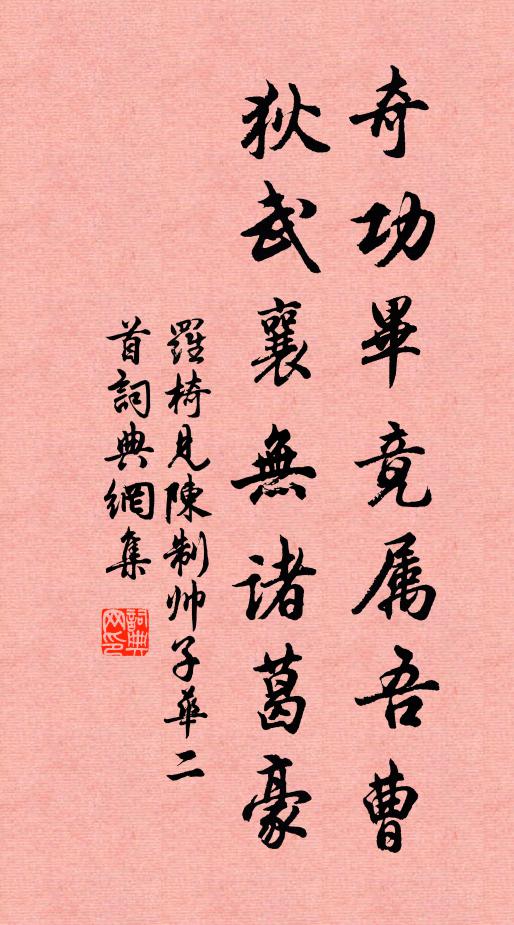 奇功畢竟属吾曹
狄武襄無諸葛豪
羅椅見陳制帅子華二
首詞典網集
詞典
网印